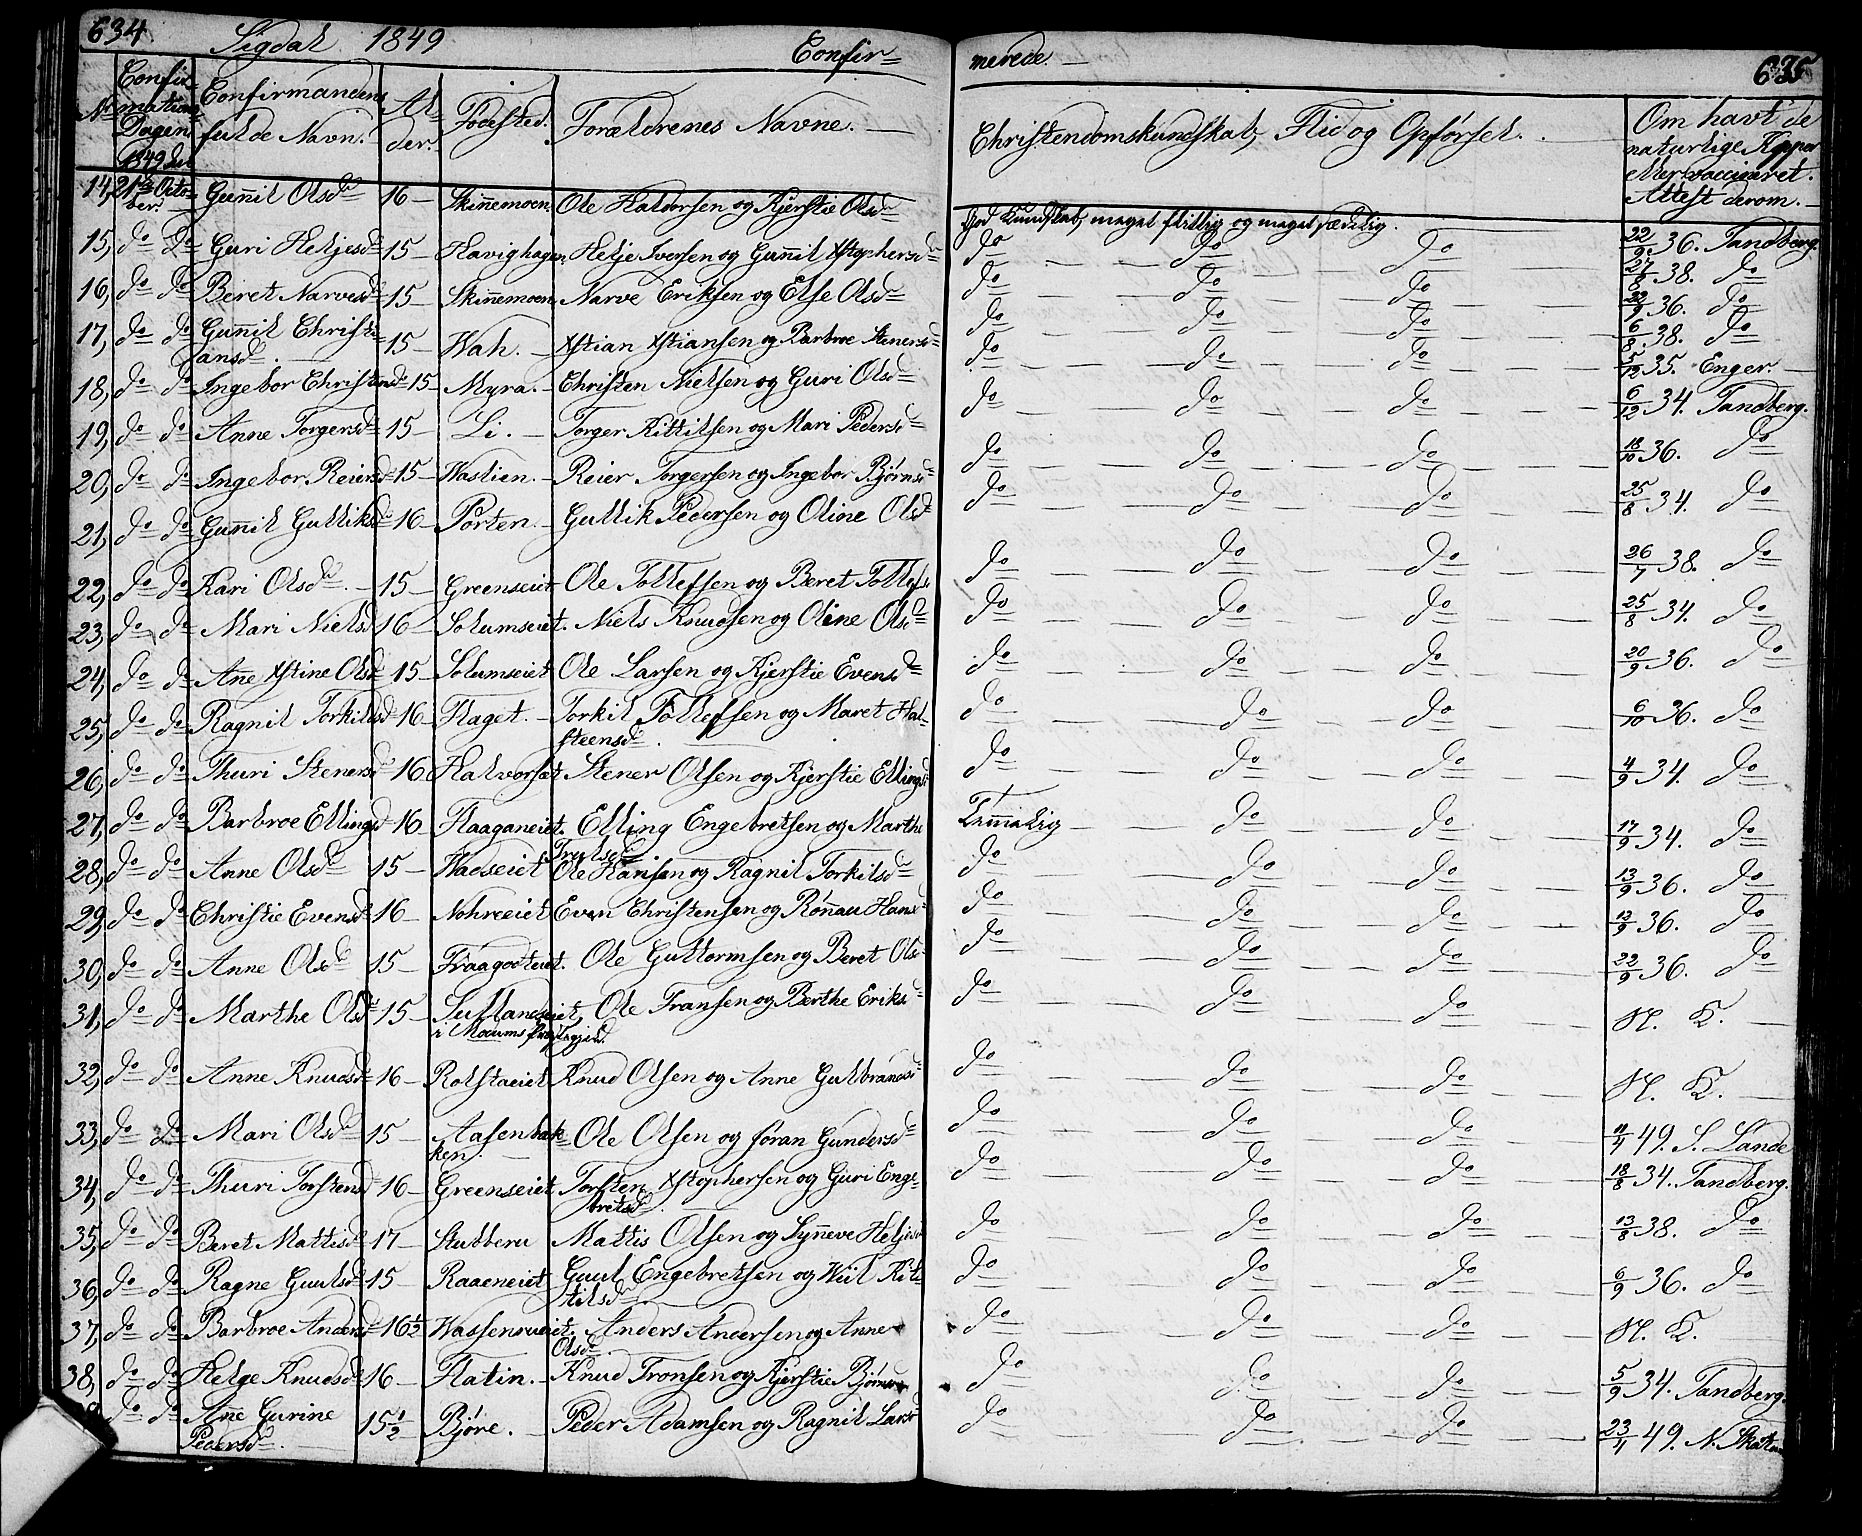 634 Sigdal 1849 Confir=
No Confir- Confirmandens Al- Fødested. Forældrenes Navne. —
mations fulde Navn. der.
Dagen
1849 den
14, 21de Octo- Gunnil Olsd 16 — Skinnemoen Ole Halvorsen og Kjerstie Olsd
ber.
15, do do Guri Heljesd 15 — Havighagen Helje Iversen og Gunnil Xstophersd
16, do do Beret Narvesd 15 — Skinnemoen Narve Eriksen og Else Olsd
17, do do Gunil Christi 15 — Wah. — Xstian Xstiansen og Barbroe Stenersd
jansd.
18, do do Ingebor Christensd 15 — Myra. — Christen Nielsen og Guri Olsd
19, do do Anne Torgersd 15 — Li. — Torger Kittilsen og Mari Pedersd
20, do do Ingebor Reiersd 15 — Hastien. — Reier Torgersen og Ingebor Bjørnsd
21, do do Gunnil Gulliksd 16 — Porten. — Gullik Pedersen og Oline Olsd
22, do do Kari Olsd. — 15 — Greenseiet Ole Tollefsen og Beret Tollefs
23, do do Mari Nielsd 16 — Solumseiet. Niels Knudsen og Oline Olsd
24, do do Ane Xstine Olsd 15 — Solumseiet Ole Larsen og Kjerstie Evensd
25, do do Ragnil Torkilsd 16 — Flaget. — Torkil Tollefsen og Maret Hal-
steensd.
26, do do Thuri Stenersd 16 Halvorsæt Stener Olsen og Kjerstie Ellingsd
27, do do Barbroe Ellingsd 16 — Haaganeiet. Elling Engebretsen og Marthe
28, do do Anne Olsd 15 — Ole Hansen og Ragnil Torkilsd
29, do do Christie Evensd 16 — Nohreeiet Even Christensen og Rønnau Hansd
30, do do Anne Olsd 15 — Ole Guttormsen og Beret Olsd
31, do do Marthe Olsd 15 — Ole Fransen og Berthe Eriksd
i Modums Præstegjeld.
32, do do Anne Knudsd 16 — Rolstaeiet Knud Olsen og Anne Gulbrandsd
33, do do Mari Olsd 15 — Aasenbak- Ole Olsen og Joran Gundersd
ken.
34, do do Thuri Torstensd 16 — Greenseiet Torsten Xstophersen og Guri Enge-
bretsd.
35, do do Beret Mattisd 17 — Stubberu Mattis Olsen og Synneve Heljesd
36, do do Ragne Guulsd 15 — Raaeneiet Guul Engebretsen og Kit-
tilsd
37, do do Barbroe Andersd 16½ Anders Andersen og Anne
Olsd
38, do do Helge Knudsd 16 — Flatin. — Knud Tronsen og Kjerstie Bjørnsd
do do Anne Gurine 15½ Bjøre. — Peder Adamsen og Ragnil Larsd
Pedersd. —
merede. — 635
Christendomskundskab, Flid og Opførsel. Om havt de
naturlige Kopper
eller vaccineret.
Attest derom. —
god Kundskab, meget flittig og meget sædelig. 22/9 36. Tandberg.
do do do 27/8 38. do
do do do 22/9 36. do
do do do 6/8 38. do
do do do 5/12 35. Enger —
do do do 6/12 34. Tandberg.
do do do 18/10 36. do
do do do 25/8 34. do
do do do 26/7 38. do
do do do 25/8 34. do
do do do 20/9 36. do
do do do 6/10 36. do
do do do 4/9 34. do
Temmelig do do 17/9 34. do
do do do 13/9 36. do
do do do 13/9 36. do
do do do 22/9 36. do
do do do N. K. —
do do do N. K. —
do do do 11/4 49. S. Lande
do do do 18/8 34. Tandberg.
do do do 13/8 38. do
do do do 6/9 36. do
do do do N. K.
do do do 5/9 34. Tandberg
do do do 23/4 49. N.